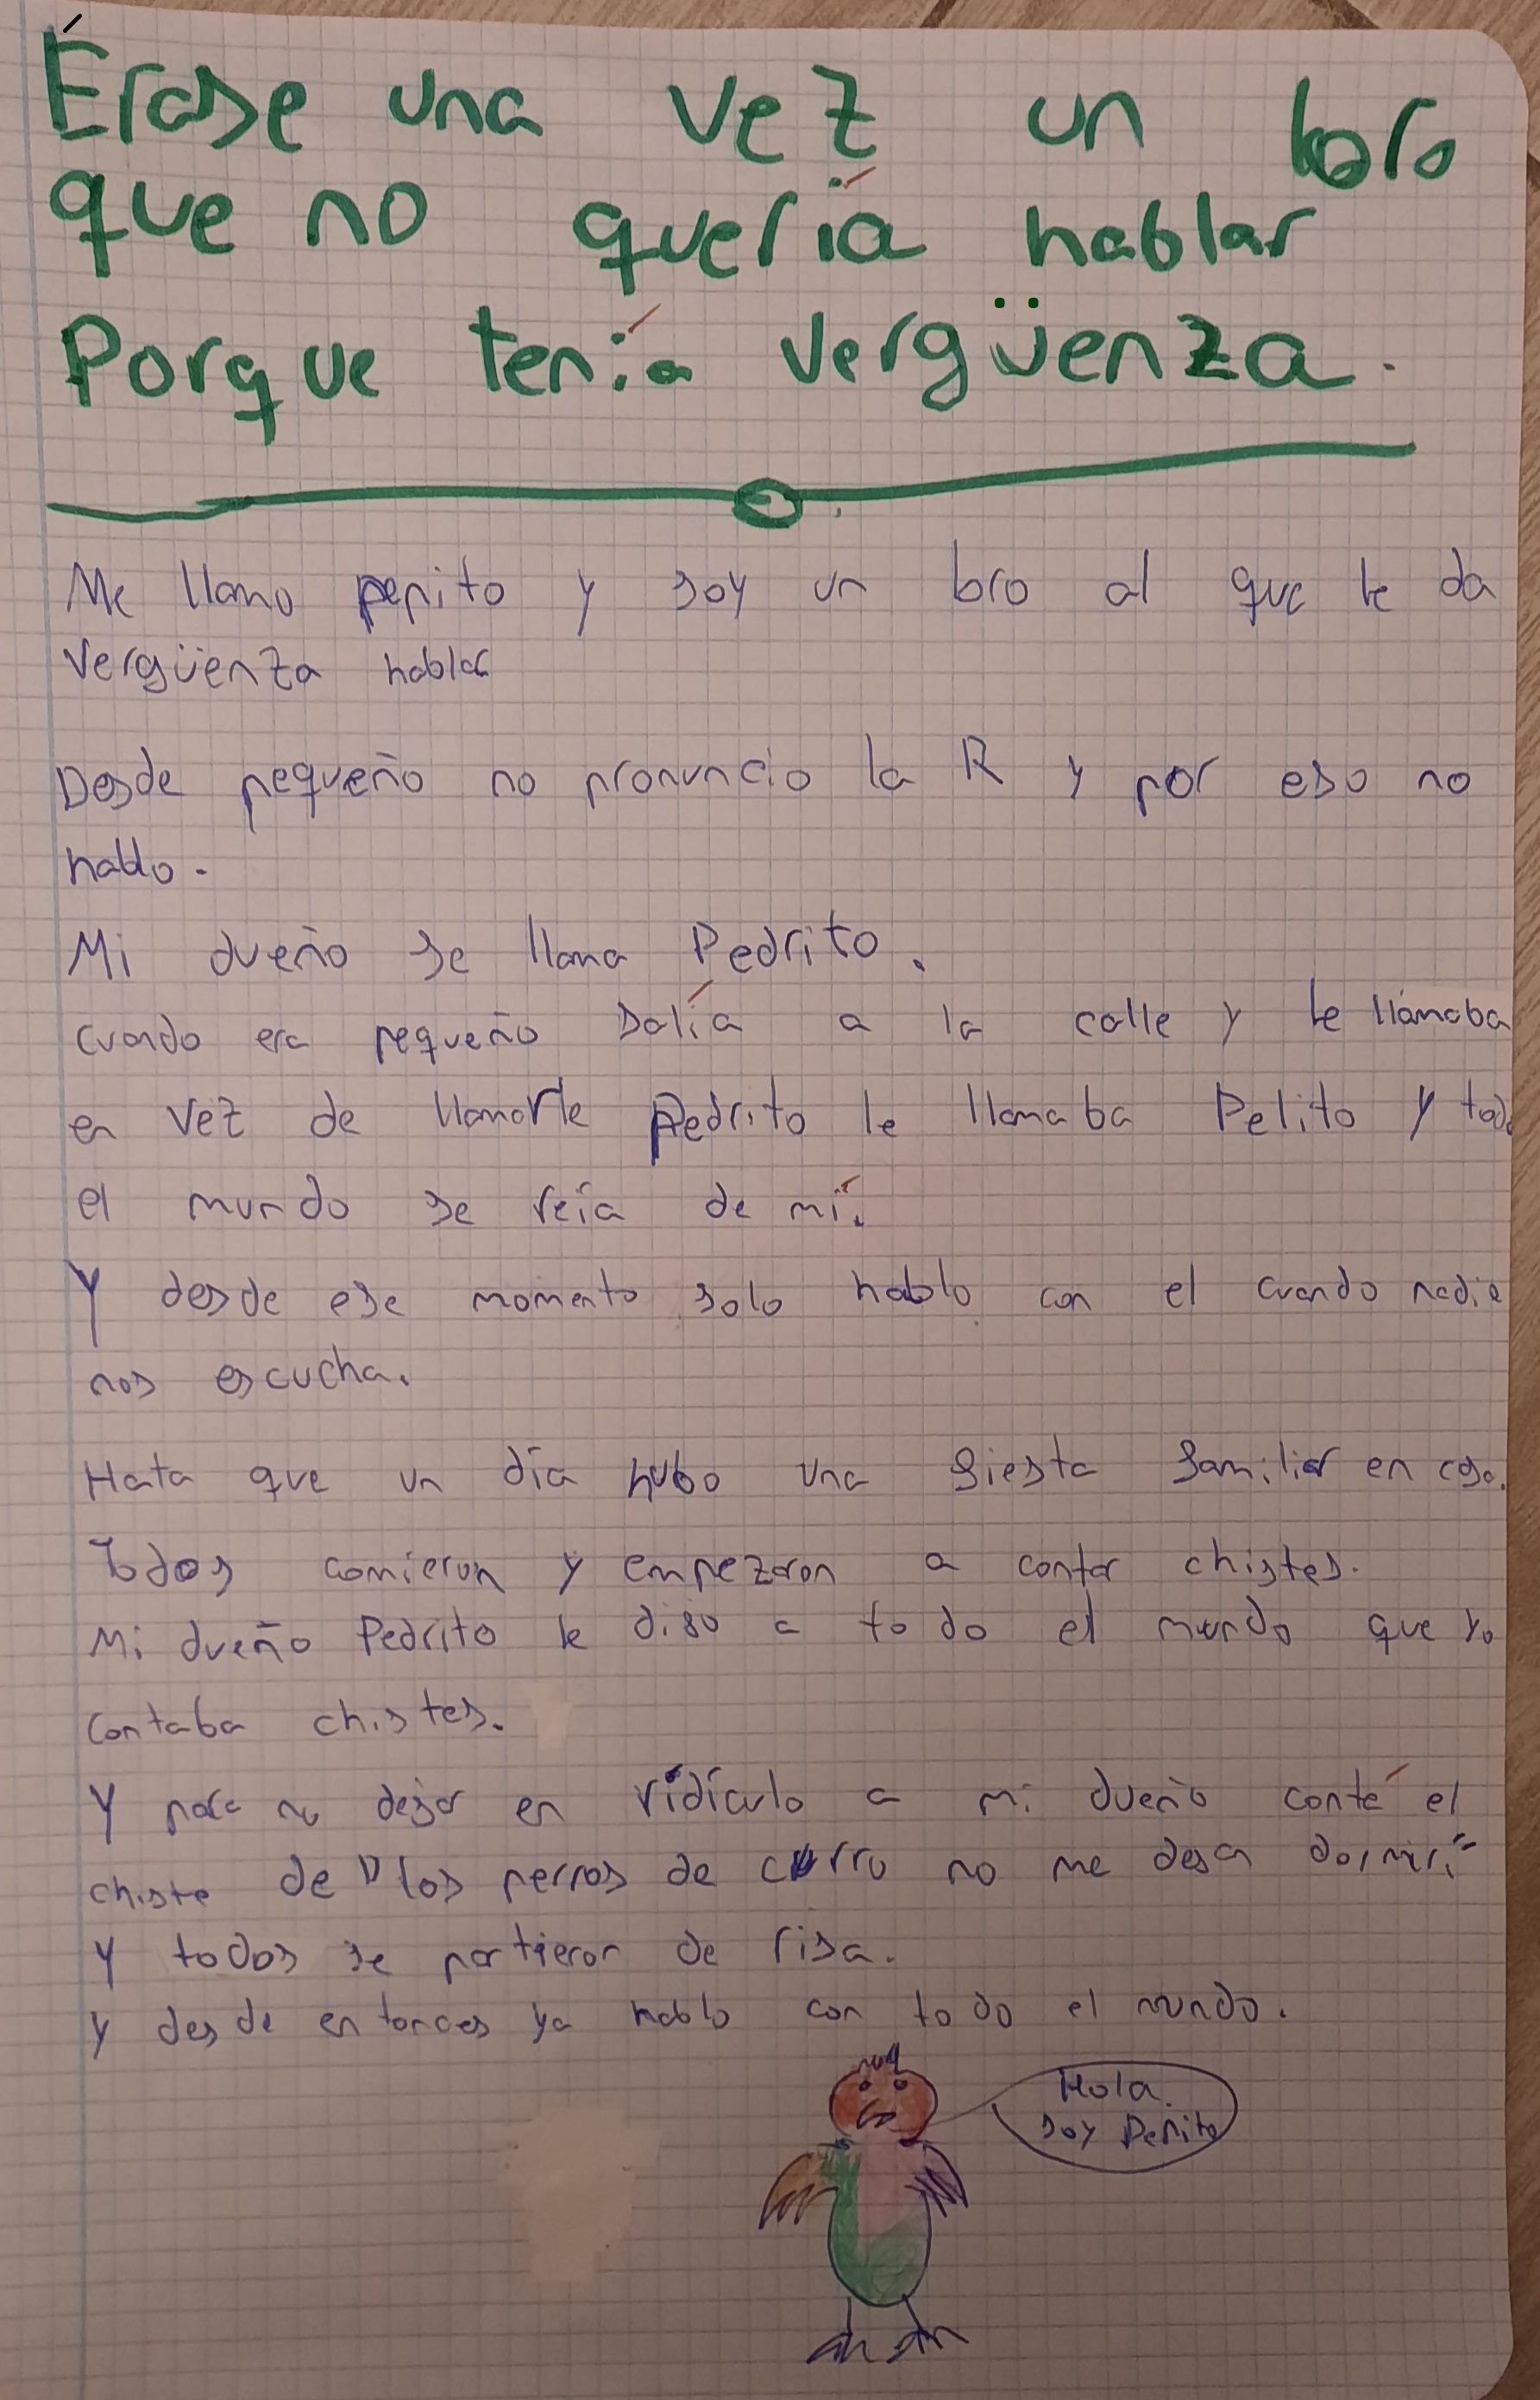 Érase una vez un loro
que no quería hablar
Porque tenía vergüenza.
Me llamo pepito y soy un loro al que le da
vergüenza hablar
Desde pequeño no pronuncio la R y por eso no
hablo.
Mi dueño se llama Pedrito.
cuando era pequeño salía a la calle y le llamaba
en vez de llamarle Pedrito le llamaba Pelito y todo
el mundo se reía de mí.
Y desde ese momento solo hablo con el cuando nadie
nos escucha.
Hata que un día hubo una fiesta familiar en casa.
Todos comieron y empezaron a contar chistes.
Mi dueño Pedrito le dijo a todo el mundo que yo
contaba chistes.
Y para no dejar en ridículo a mi dueño conté el
chiste de "los perros de curro no me deja dormir"
y todos se partieron de risa.
y desde entonces ya hablo con todo el mundo.
Hola.
soy Pepito